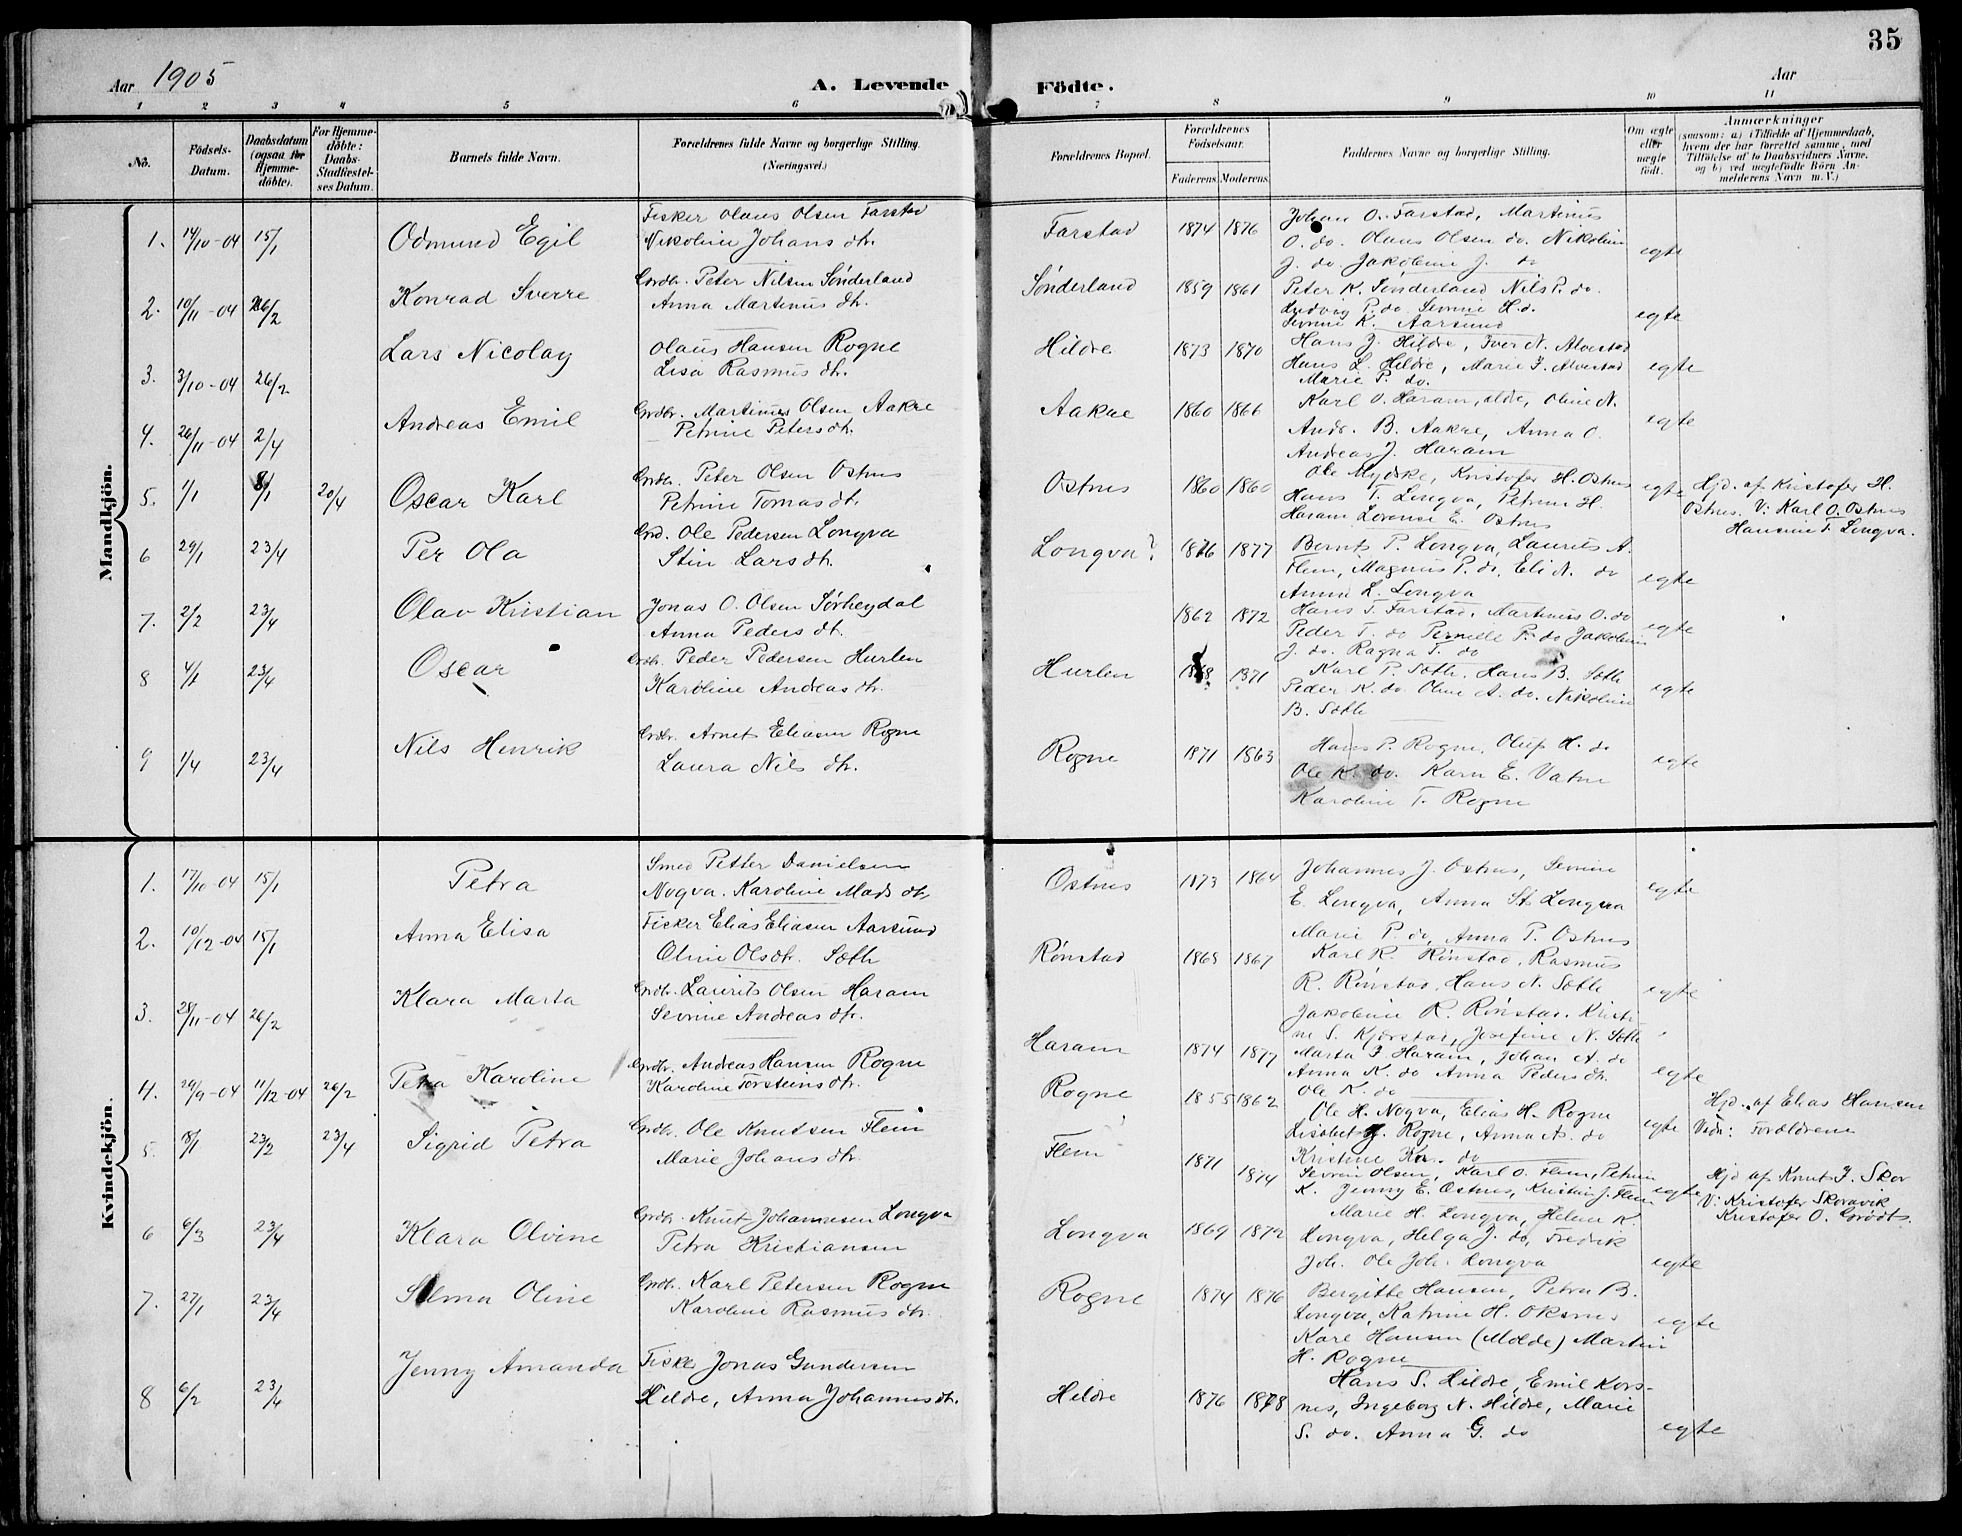 35
Aar 1905
A. Levende
Födte.
Aar
1 2 3 4 5 6 7 8 9 10 11
No.
Födsels-Datum.
Daabsdatum (ogsaa for Hjemme-döbte).
For Hjemme-döbte: Daabs-Stadfæstel-ses Datum.
Barnets fulde Navn.
Forældrenes fulde Navne og borgerlige Stilling.
(Næringsvei.)
Forældrenes Bopæl.
Forældrenes Fødselsaar.
Faderens. Moderens.
Faddernes Navne og borgerlige Stilling.
Om ægte eller uægte födt.
Anmærkninger
(saasom: a) i Tilfælde af Hjemmedaab, hvem der har forrettet samme, med Tilföielse af to Daabsvidners Navne, og b) ved uægtefödte Börn An-melderens Navn m. V.)
Mandkjön.
1. 14/10-04 15/1 Odmund Egil
Fisker Olaus Olsen Farstad
Nikoline Johans dtr.
Farstad 1874 1876
Johan O. Farstad, Martinus
O. do. Olaus Olsen do. Nikolin
J. do Jakobine J. do
egte
2. 10/11-04 26/2 Konrad Sverre
Grdbr. Peter Nilsen Sønderland
Anna Martinus dtr.
Sønderland 1859 1861
Peter K. Sønderland Nils P. do.
Ludvig P. do Sevrine H. do.
Sevrine K. Aarsund
egte
3. 3/10-04 26/2 Lars Nicolay
Olaus Hansen Rogne
Lisa Rasmus dtr.
Hildre 1873 1870
Hans J. Hildre, Iver N. Alvestad
Hans L. Hildre, Marie I. Alvestad
Marie P. do.
egte
4. 26/11-04 2/4 Andreas Emil
Grdbr. Martinus Olsen Aakre
Petrine Peters dtr.
Aakre 1860 1866
Karl O. Haram, eldre, Oline N.
Andr. B. Aakre, Anna O.
Andreas J. Haram
egte
5. 1/1 8/1 20/4 Oscar Karl
Grdbr. Peter Olsen Ostnes
Petrine Tomas dtr.
Ostnes 1860 1860
Ole Mydske, Kristofer H. Ostnes
Hans T. Longva, Petrine H.
Haram Lorense E. Ostnes
egte
Hjd. af Kristofer H.
Ostnes. V: Karl O. Ostnes
Hansine T. Longva.
6 29/1 23/4 Per Ola
Grd. Ole Pedersen Longva
Stin Lars dtr.
Longva? 1876 1877
Bernt P. Longva, Laurits A.
Flem, Magnus P. do, Eli N. do
Anna L. Longva
egte
7. 2/2 23/4 Olav Kristian
Jonas O. Olsen Sørheydal
Anna Peders dt.
1862 1872
Hans T. Farstad, Martinus O. do
Peder T. do Pernelle P. do Jakobine
J. do. Ragna T. do
egte
8 4/1 23/4 Oscar
Grdbr. Peder Pedersen Hurlen
Karoline Andreas dtr.
Hurlen 1868 1871
Karl P. Sæth, Hans B. Sæth
Peder K. do Oline A. do. Nikoline
B. Sæth
egte
9 1/4 23/4 Nils Henrik
Grdbr. Arnet Eliasen Rogne
Laura Nils dtr.
Rogne 1871 1863
Hans P. Rogne, Oluf H. do
Ole K. do. Karn E. Vatne
Karoline T. Rogne
egte
Kvindekjön.
1. 17/10-04 15/1 Petra
Smed Petter Danielsen
Nogva. Karoline Mads dtr.
Ostnes 1873 1864
Johannes J. Ostnes, Sevrine
E. Longva, Anna St. Longva
Marie P. do, Anna P. Ostnes
egte
2. 10/12-04 15/1 Anna Elisa
Fisker Elias Eliasen Aarsund
Oline Ols dtr. Sæth
Rønstad 1868 1867
Karl R. Rønstad, Rasmus
R. Rønstad, Hans N. Sæth
Jakobine R. Rønstad. Kristi-
ne S. Kjærstad, Josefine N. Sæth
egte
3. 28/11-04 26/2 Klara Marta
Grdbr. Laurits Olsen Haram
Sevrine Andreas dtr.
Haram 1874 1877
Marta I. Haram, Johan A. do
Anna K. do Anna Peders dtr.
Ole K. do
egte
4. 29/9-04 11/12-04 26/2 Petra Karoline
Grdbr. Andreas Hansen Rogne
Karoline Torsteins dtr.
Rogne 1855 1862
Ole H. Nogva, Elias H. Rogne
Lisabet J. Rogne, Anna A. do
Kristine Ka. do
egte
Hjd. af Elias Hansen
Vidn: Forældrene
5. 8/1 23/2 23/4 Sigrid Petra
Grdbr. Ole Knutsen Flem
Marie Johans dtr.
Flem 1871 1874
Sevrin Olsen, Karl O. Flem, Petrine
K. Jenny E. Ostnes, Kristine J. Flem
egte
Hjd af Knut J. Skor
V: Kristofer Skoravik
Kristofer O. Grødt.
6 6/3 23/4 Klara Olvine
Grdbr. Knut Johannesen Longva
Petra Kristiansen
Longva 1869 1872
Marie H. Longva, Helene K.
Longva, Helga J. do, Fredrik
Joh. Ole Joh. Longva
egte
7. 27/1 23/4 Selma Oline
Grdbr. Karl Petersen Rogne
Karoline Rasmus dtr.
Rogne 1874 1876
Bergitte Hansen, Petra B.
Longva, Katrine H. Oksnes
Karl Hansen (Molde) Martin
H. Rogne
egte
8 6/2 23/4 Jenny Amanda
Fisker Jonas Gundersen
Hildre, Anna Johannes dtr.
Hildre 1876 1878
Hans S. Hildre, Emil Kors-
nes, Ingeborg N. Hildre, Marie
S. do. Anna G. do
egte